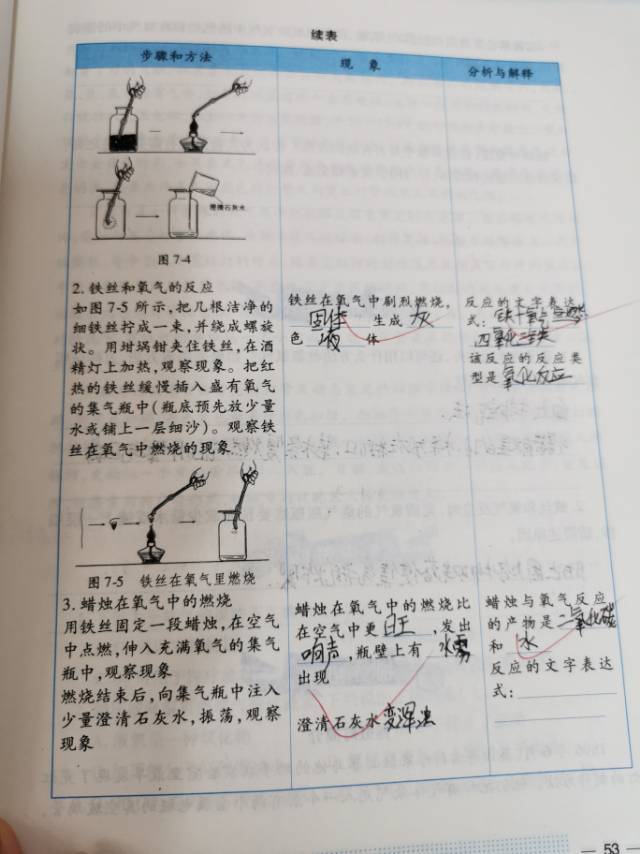 续表
步骤和方法
现 象
分析与解释
澄清石灰水
图 7-4
2. 铁丝和氧气的反应
如图 7-5 所示,把几根洁净的
细铁丝拧成一束,并绕成螺旋
状。用坩埚钳夹住铁丝,在酒
精灯上加热,观察现象。把红
热的铁丝缓慢插入盛有氧气
的集气瓶中(瓶底预先放少量
水或铺上一层细沙)。观察铁
丝在氧气中燃烧的现象
铁丝在氧气中剧烈燃烧,
固体 生成 灰
色 体
反应的文字表达
式: 铁+氧气
四氧化三铁
该反应的反应类
型是 氧化反应
图 7-5 铁丝在氧气里燃烧
3. 蜡烛在氧气中的燃烧
用铁丝固定一段蜡烛,在空气
中点燃,伸入充满氧气的集气
瓶中,观察现象
燃烧结束后,向集气瓶中注入
少量澄清石灰水,振荡,观察
现象
蜡烛在氧气中的燃烧比
在空气中更 旺 ,发出
响声 ,瓶壁上有 水雾
出现
澄清石灰水 变浑浊
蜡烛与氧气反应
的产物是 二氧化碳
和 水
反应的文字表达
式:
53